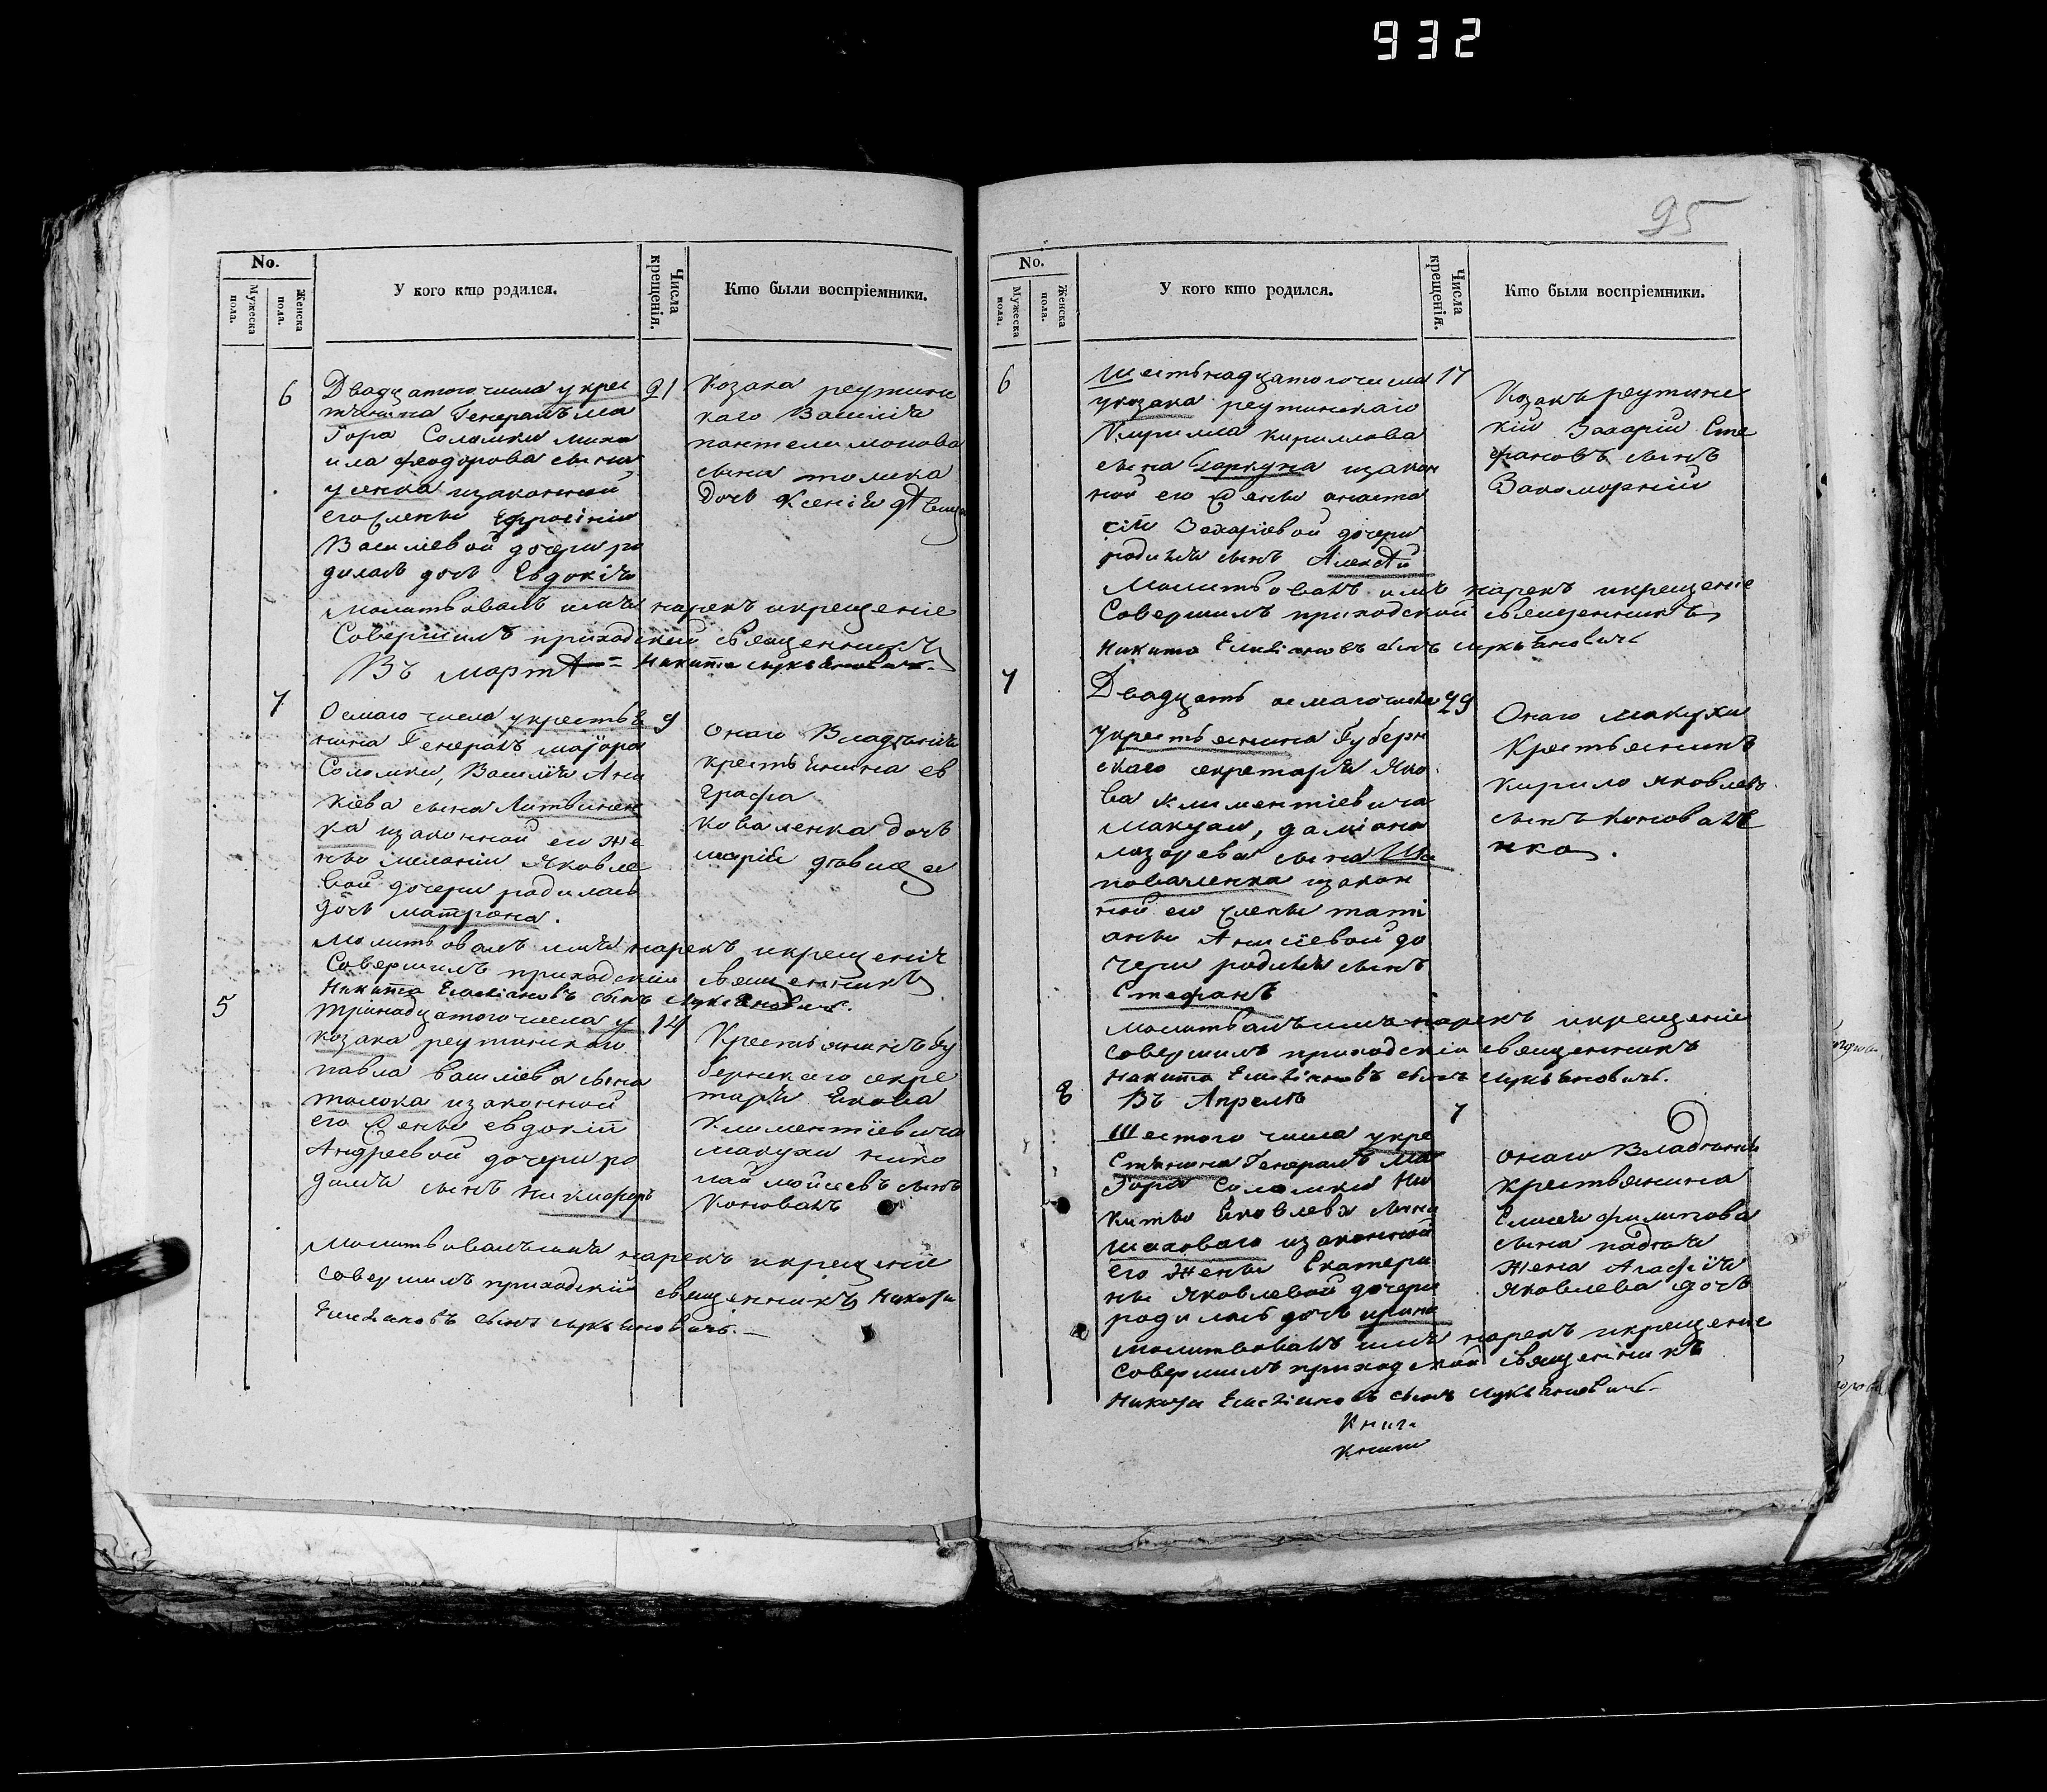 932
95
No.
Мужеска пола.
Женска пола.
У кого кто родился.
Числа крещенія.
Кто были воспріемники.
6
Двадцатого числа у крес
тянина Генералъ Ма
Іора Соломки Миха
ила Феодорова сына
изаконной
его жены Ефросініи
Василіевой дочери ро
дилась дочь Евдокія
21
Козака реутинс
каго Василія
пантелимонова
сына толока
дочь Ксенія дѣвица
молитвовалъ имя нарекъ икрещеніе
Совершилъ приходскій священникъ
Въ мартѣ = Никита Лукьяновичь.
7
Осмаго числа укрестья
нина Генералъ маіора
Соломки, Василія Ани
кіева сына Литвинен
ка изаконной его же
ны меланіи Яковле
вой дочери родилась
дочь матрона.
9
Онаго Владѣнія
крестьянина ев
графа
Коваленка дочь
марія дѣвица
Молитвовалъ имя нарекъ икрещеніе
Совершилъ приходскій священникъ
Никита Емеліановъ сынъ Лукьяновичь.
5
тринадцатого числа у
козака реутинского
павла василіева сына
толока изаконной
его жены евдокіи
Андреевой дочери ро
дился сынъ Никифоръ
14
Крестьянинъ гу
бернскаго секре
таря Якова
Климентіевича
макухи нико
лай мойсеевъ сынъ
Коновалъ
Молитвовалъ имя нарекъ икрещеніе
совершилъ приходскій священникъ Никита
Емеліановъ сынъ Лукьяновичь.
No.
Мужеска пола.
Женска пола.
У кого кто родился.
Числа крещенія.
Кто были воспріемники.
6
Шестьнадцатого числа
укозака реутинскаго
Кирилла кирилова
сына изакон
ной его жены анаста
сіи Захаріевой дочери
родился сынъ Алексѣй
17
Козакъ реутинс
кій Захарій Сте
фановъ сынъ
Молитвовалъ имя нарекъ икрещеніе
Совершилъ приходской священникъ
Никита Емеліановъ сынъ Лукьяновичь
7
Двадцать осмаго числа
укрестьянина Губерн
скаго секретаря Яко
ва Климентіевича
Макухи, даміана
лазорева сына Ша
поваленка изакон
ной его жены таті
аны Анисіевой до
чери родился сынъ
Стефанъ
29
Онаго макухи
Крестьянинъ
кирило яковлевъ
сынъ Коновале
нко.
молитвалъ имя нарекъ икрещеніе
совершилъ приходскій священникъ
Никита Емеліановъ сынъ Лукьяновичь.
8
Въ Апрелѣ
Шестого числа укре
стянина Генералъ Ма
Іора Соломки Ни
киты Яковлева сына
изаконной
его жены Екатери
ны Яковлевой дочери
родилась дочь ирина
7
онаго Владѣнія
крестьянина
Елисея филипова
сына
жена Агафія
яковлева дочь
молитвовалъ имя нарекъ икрещеніе
Совершилъ приходской священникъ
Никита Емеліановъ сынъ Лукьяновичь.
Книги
Книги